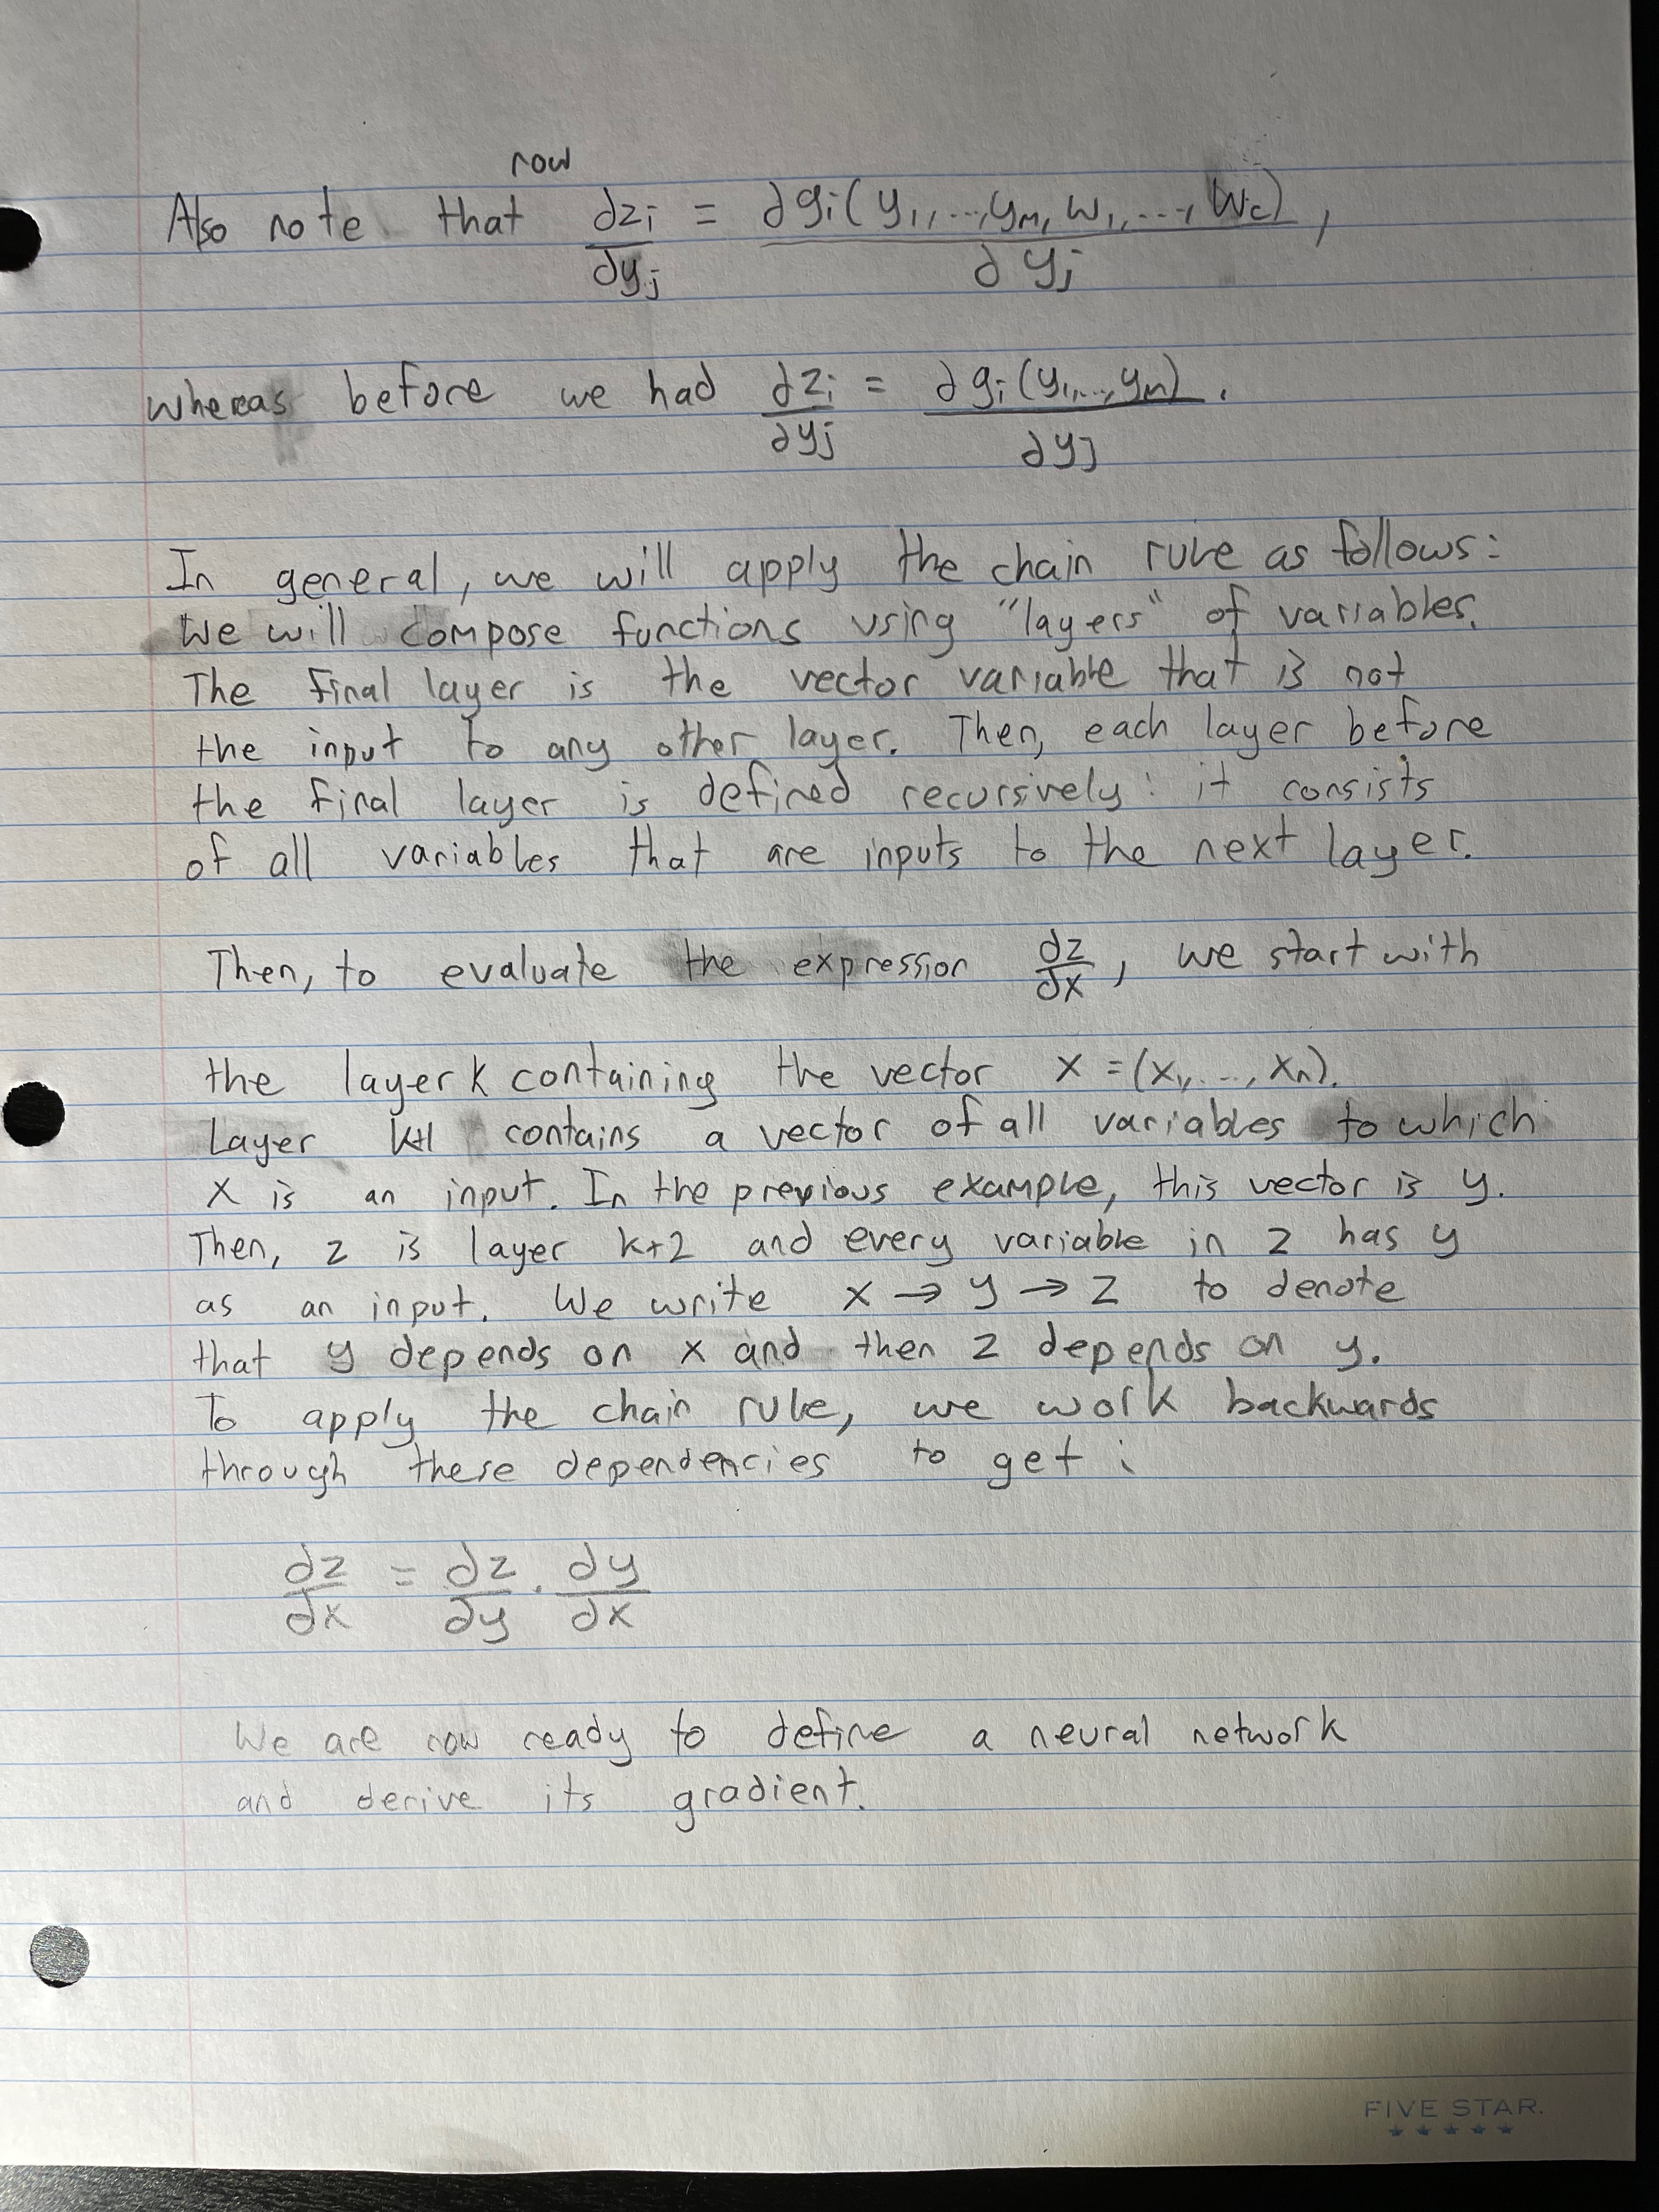 now
Also note that ∂zi/∂yj = ∂gi(y1,...,ym, w1,...,wc)/∂yj ,
whereas before we had ∂zi/∂yj = ∂gi(y1,...,ym)/∂yj .
In general, we will apply the chain rule as follows:
We will compose functions using "layers" of variables.
The final layer is the vector variable that is not
the input to any other layer. Then, each layer before
the final layer is defined recursively: it consists
of all variables that are inputs to the next layer.
Then, to evaluate the expression ∂z/∂x , we start with
the layer k containing the vector x = (x1,...,xn).
Layer k+1 contains a vector of all variables to which
x is an input. In the previous example, this vector is y.
Then, z is layer k+2 and every variable in z has y
as an input. We write x → y → z to denote
that y depends on x and then z depends on y.
To apply the chain rule, we work backwards
through these dependencies to get :
∂z/∂x = ∂z/∂y · ∂y/∂x
We are now ready to define a neural network
and derive its gradient.
FIVE STAR.